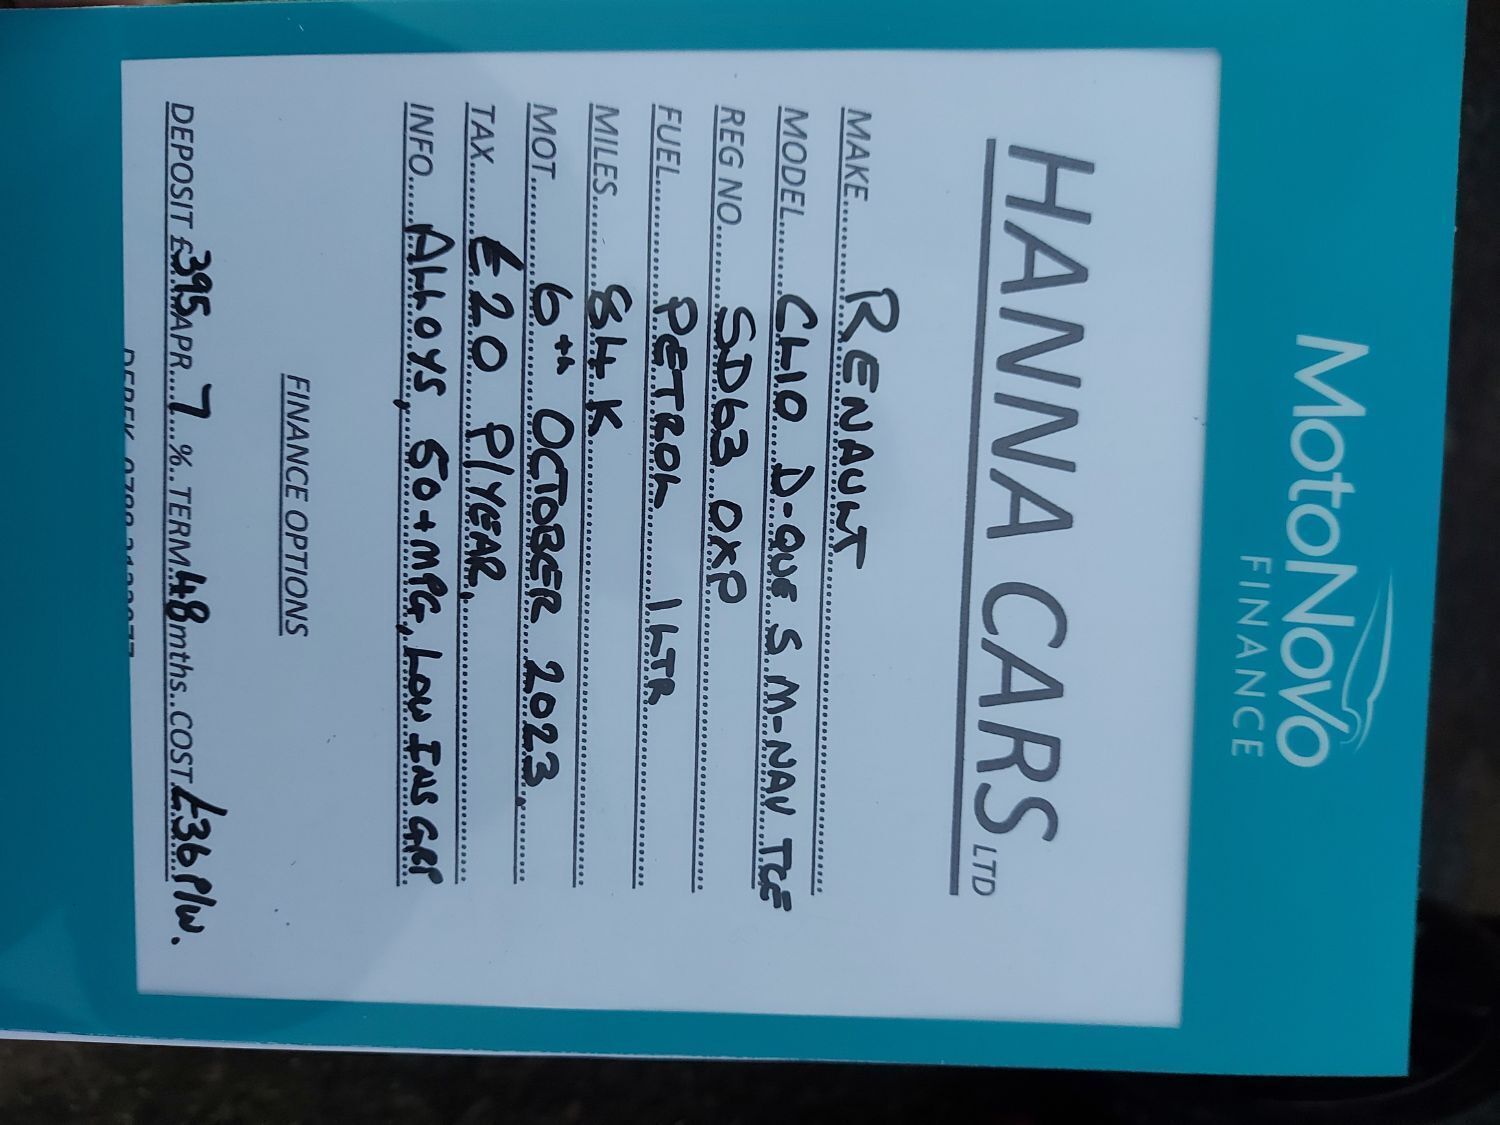 MotoNovo
FINANCE
HANNA CARS LTD
MAKE RENAULT
MODEL CLIO D-QUE S M-NAV TCE
REG NO SD63 OXP
FUEL PETROL 1LTR
MILES 84K
MOT 6th OCTOBER 2023.
TAX £20 P/YEAR.
INFO ALLOYS, 50+MPG, LOW INS GRP
FINANCE OPTIONS
DEPOSIT £395 APR 7 % TERM 48 mths COST £36 P/W.
DEREK